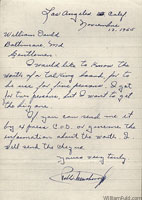 Los Angeles Calif
Noviembre
12. 1920
William Fuld
Baltimore Md
Gentlemen
I would like to know the
worth of a talking board, for to
be use for five persons. I got
for two persons, but I want to get
the big one.
If you can send me it
by express C.O.D. or give me the
information about the worth I
will send the cheque
Yours very truly.
WilliamFuld.com